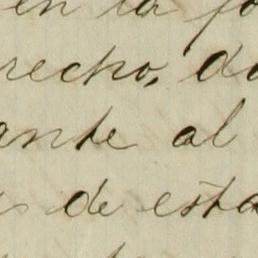 en la fo
recho, do
ante al
s de esta